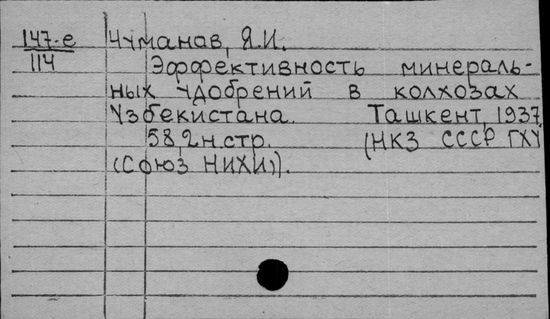 147-е Чуманов, Я.И.
114 Эффективность минераль-
ных удобрений в колхозах
Узбекистана. Ташкент, 1937
58,2н.стр. (НКЗ СССР ГХУ
(Союз НИХИ)).